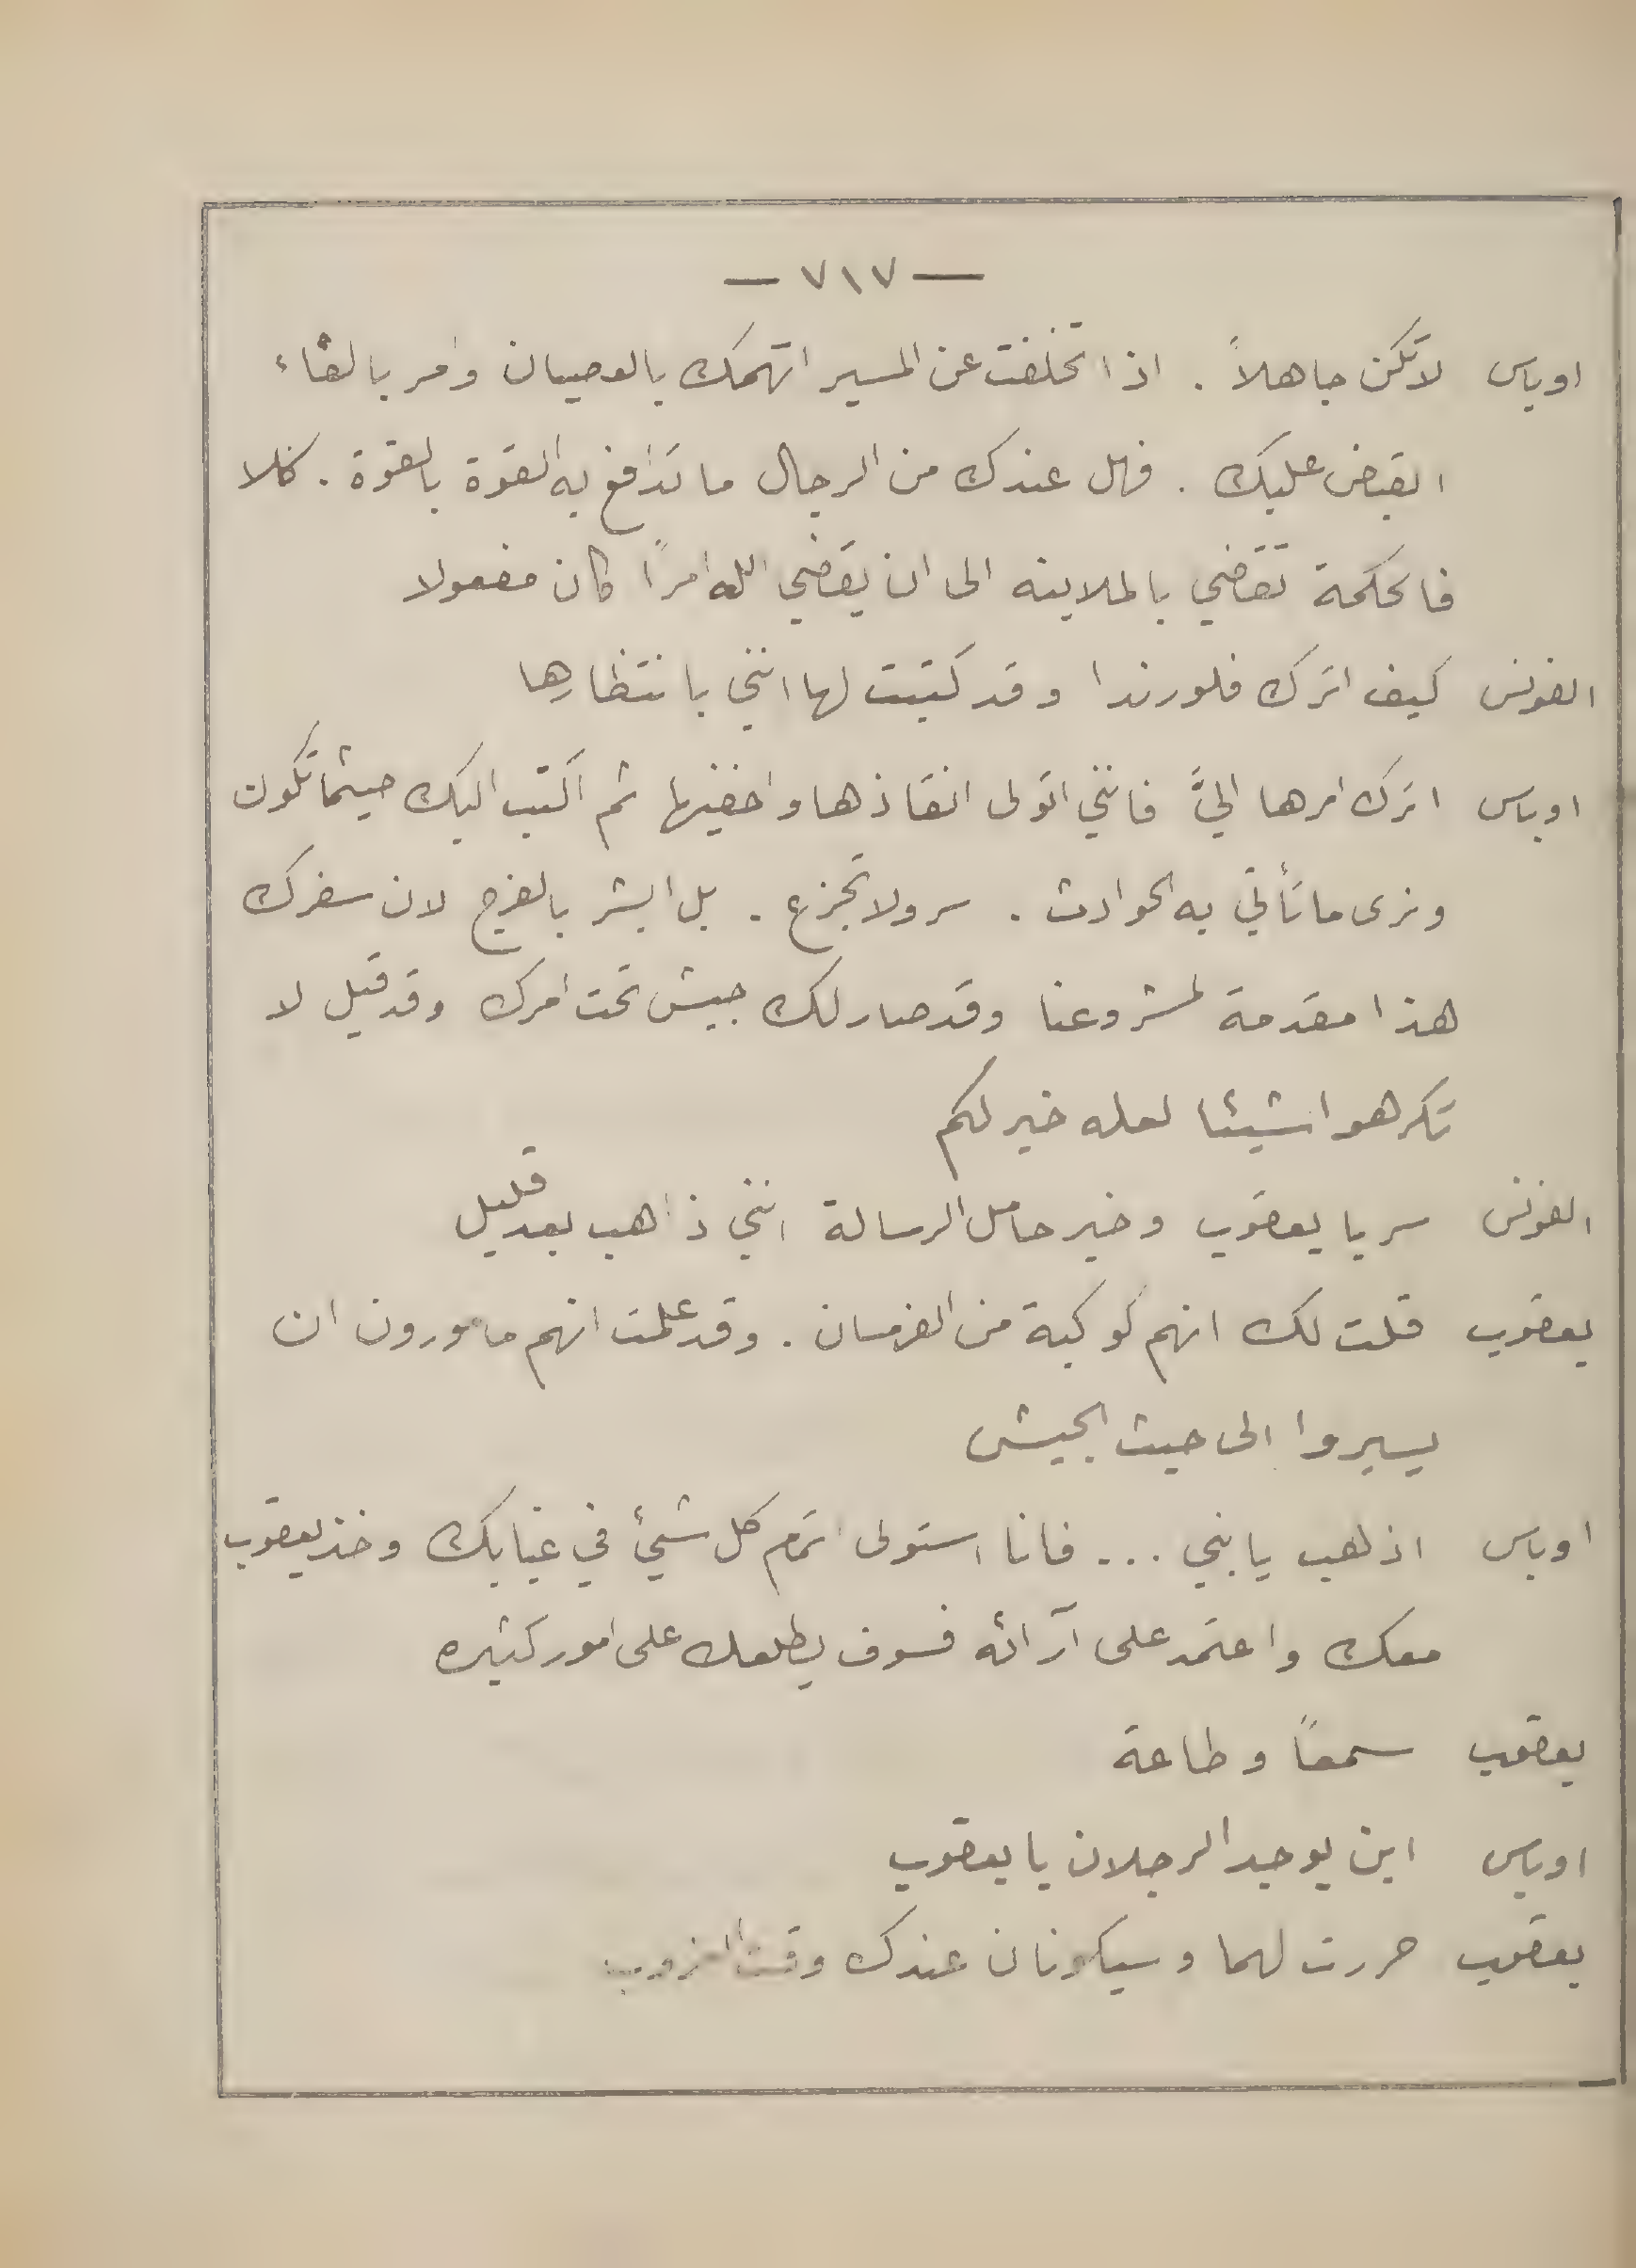 — ٧١٧ —
اوباس لا تكن جاهلاً . اذا تخلفت عن المسير اتهمك بالعصيان وامر بالقاء
القبض عليك . فهل عندك من الرجال ما تدافع به القوة بالقوة . كلا
فالحكمة تقضي بالملاينه الى ان يقضي الله امراً كان مفعولا
الفونس كيف اترك فلورندا وقد كتبت لها انني بانتظارها
اوباس اترك امرها اليَّ فانني اتولى انقاذها واخفيها ثم اكتب اليك حيثما تكون
ونرى ما تأتي به الحوادث . سر ولا تجزع . بل ابشر بالفرج لان سفرك
هذا مقدمة لمشروعنا وقد صار لك جيش تحت امرك وقد قيل لا
تكرهوا شيئا لعله خير لكم
الفونس سر يا يعقوب وخبر حامل الرسالة انني ذاهب بعد قليل
يعقوب قلت لك انهم كوكبة من الفرسان . وقد علمت انهم مامورون ان
يسيروا الى حيث الجيش
اوباس اذهب يا بني ... فانا استولى اتمام كل شيئ في غيابك وخذ يعقوب
معك واعتمد على آرائه فسوف يطلعك على امور كثيره
يعقوب سمعاً وطاعة
اوباس اين يوجد الرجلان يا يعقوب
يعقوب حررت لهما وسيكونان عندك وقت الغروب